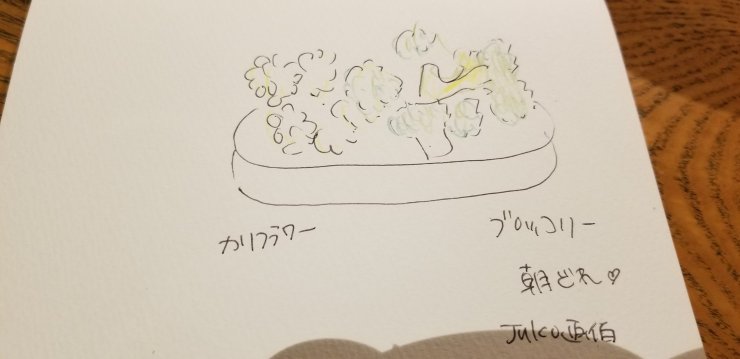 カリフラワー
ブロッコリー
朝どれ♡
Julco